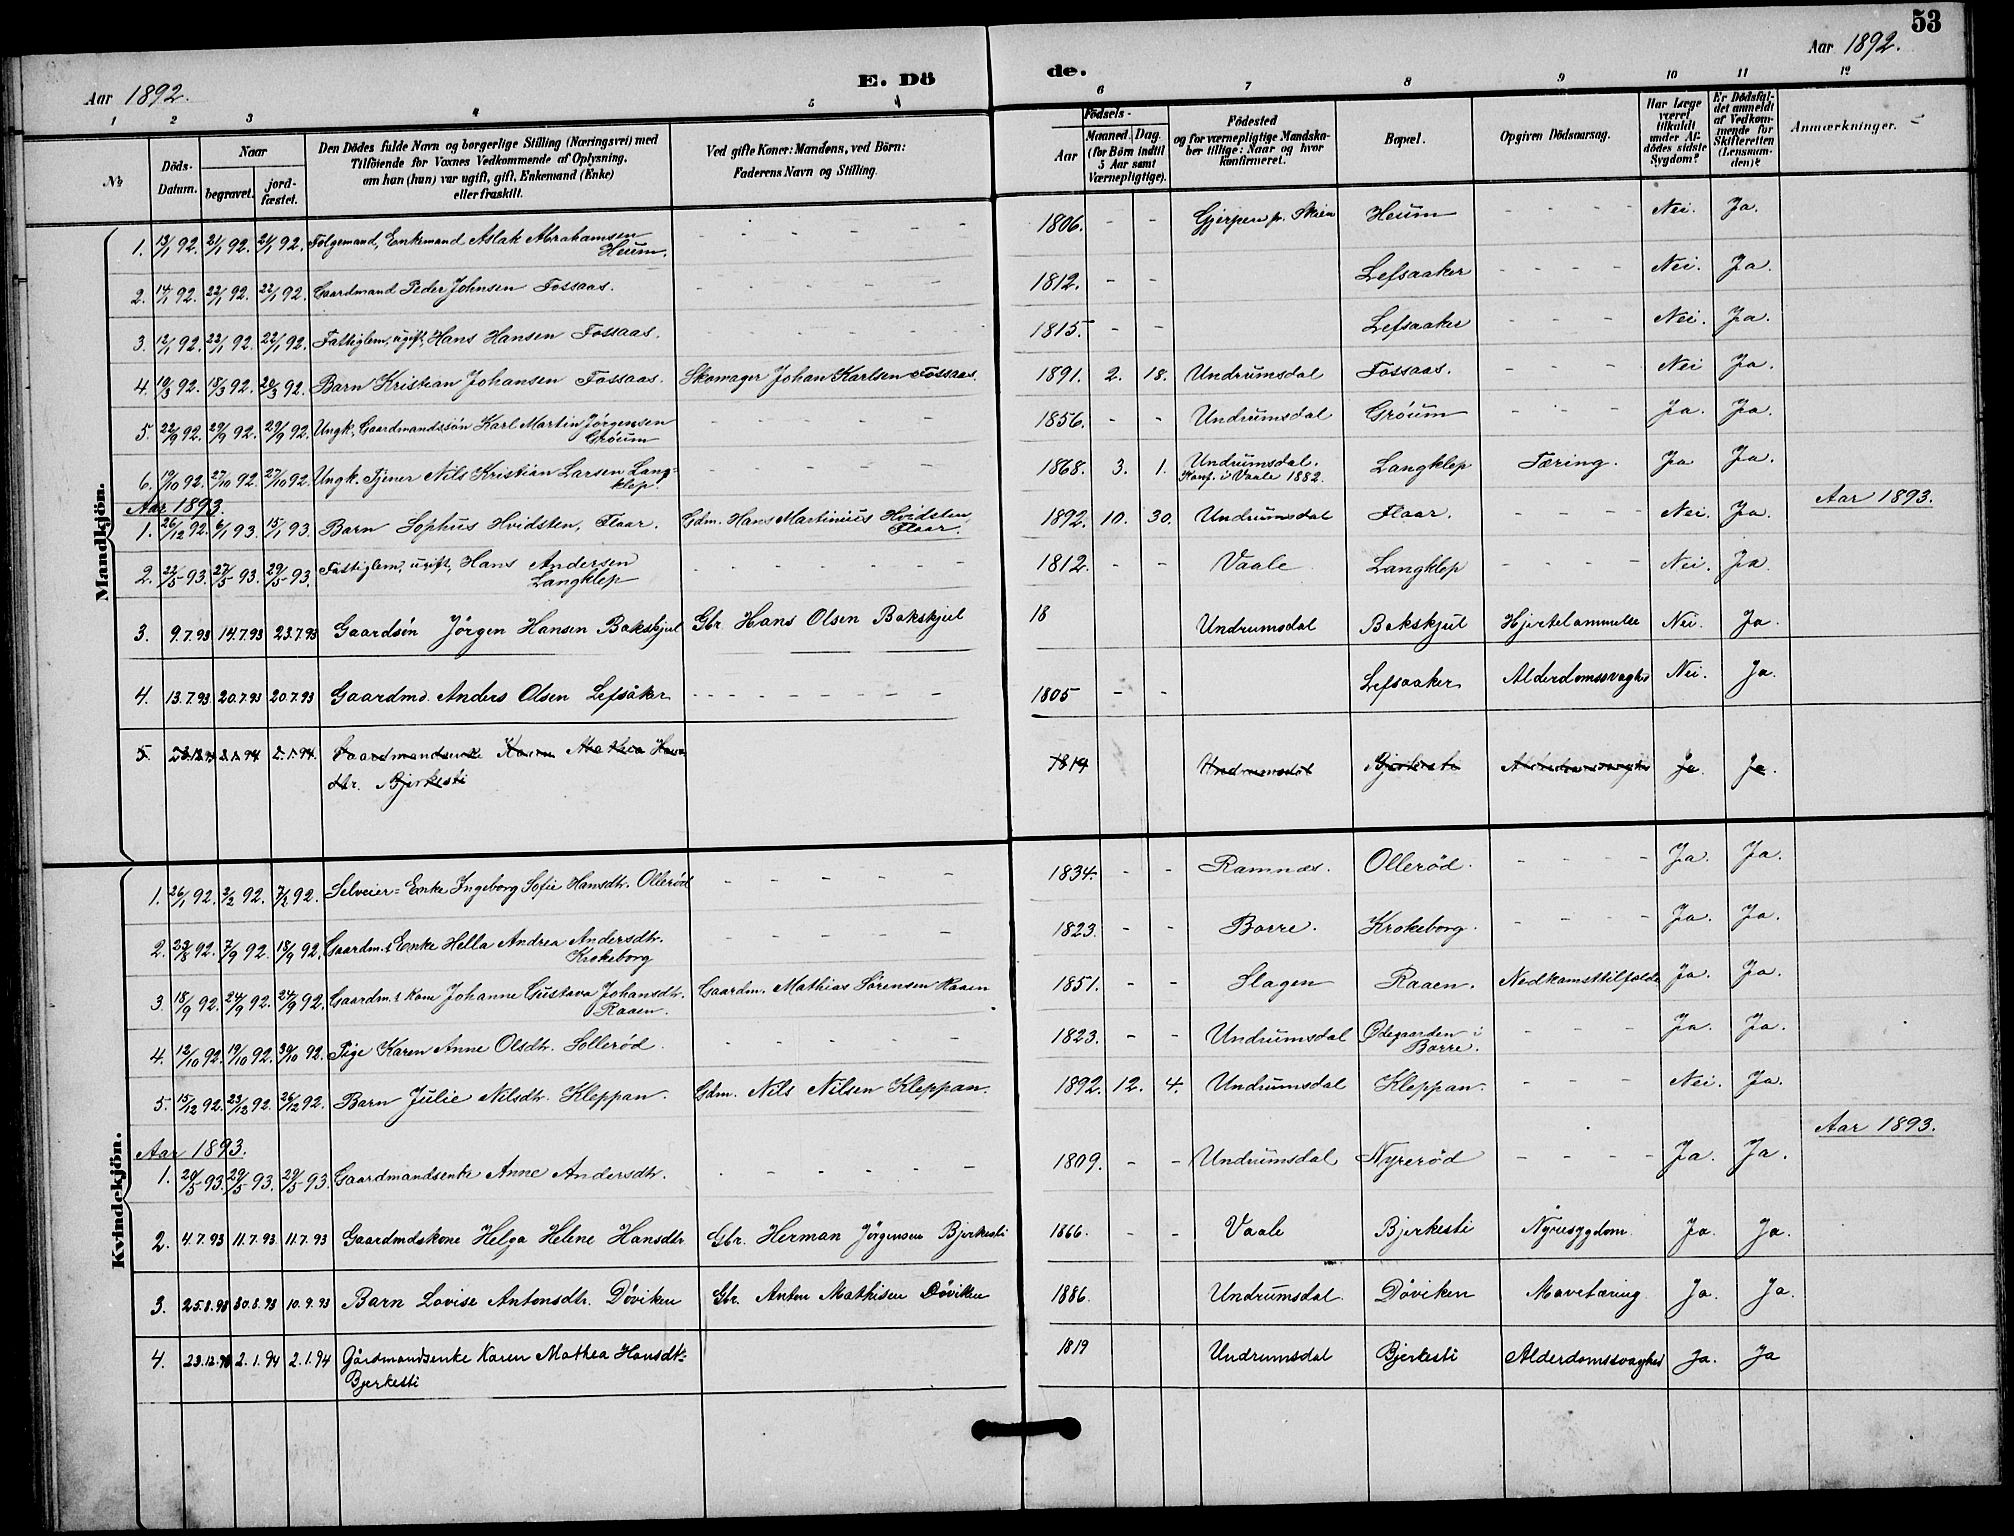 53
Aar 1892.
E. Dö
de.
Aar 1892.
1 2 3 4 5 6 7 8 9 10 11 12
№
Döds-Datum.
Naar
begravet.
jord-fæstet.
Den Dödes fulde Navn og borgerlige Stilling (Næringsvei) med
Tilföiende for Voxnes Vedkommende af Oplysning,
om han (hun) var ugift, gift, Enkemand (Enke)
eller fraskilt.
Ved gifte Koner: Mandens, ved Börn:
Faderens Navn og Stilling.
Födsels-
Aar
Maaned. Dag.
(for Börn indtil
5 Aar samt
Værnepligtige).
Födested
og for værnepligtige Mandska-
ber tillige: Naar og hvor
konfirmeret.
Bopæl.
Opgiven Dödsaarsag.
Har Læge
været
tilkaldt
under Af-
dödes sidste
Sygdom?
Er Dödsfal-
det anmeldt
af Vedkom-
mende for
Skifteretten
(Lensman-
den)?
Anmærkninger.
Mandkjön.
1. 13/1 92. 21/1 92. 21/1 92. Folgemand, Enkemand Aslak Abrahamsen Heum. - - - - - 1806. - - Gjerpen p. Skien Heum - - - - Nei. Ja.
2. 14/1 92. 22/1 92. 22/1 92. Gaardmand Peder Johnsen Fossaas. - - - - - 1812. - - Lefsaaker - - - - Nei. Ja.
3. 12/1 92. 22/1 92. 22/1 92. Fattiglem, ugift, Hans Hansen Fossaas. - - - - - 1815. - - Lefsaaker - - - - Nei. Ja.
4. 10/3 92. 18/3 92. 20/3 92. Barn Kristian Johansen Fossaas. Skomager Johan Karlsen Fossaas. 1891. 2. 18. Undrumsdal Fossaas. - - - - Nei Ja.
5. 22/9 92. 29/9 92. 29/9 92. Ungk., Gaardmandssön Karl Martin Jørgensen Gröum - - - - - 1856. - - Undrumsdal Gröum - - - Ja. Ja.
6. 19/10 92. 27/10 92. 27/10 92. Ungk. Tjener Nils Kristian Larsen Lang-klep. - - - - - 1868. 3. 1. Undrumsdal. Konf. i Vaale 1882. Langklep Tæring. Ja Ja.
Aar 1893.
Aar 1893.
1. 26/12 92. 6/1 93. 15/1 93. Barn Sophus Hvidsten, Flaar. Gdm. Hans Martinius Hvidsten, Flaar. 1892. 10. 30. Undrumsdal Flaar. - - - - Nei. Ja.
2. 22/5 93. 27/5 93. 29/5 93. Fattiglem, ugift, Hans Andersen Langklep - - - - - 1812. - - Vaale Langklep - - - - Nei. Ja.
3. 9.7.93 14.7.93 23.7.93 Gaardsön Jørgen Hansen Bakskjul Gbr. Hans Olsen Bakskjul 18 Undrumsdal Bakskjul Hjertelammelse Nei. Ja.
4. 13.7.93 20.7.93 20.7.93 Gaardmd. Anders Olsen Lefsåker - - - - - 1805 - - Lefsaaker Alderdomssvaghd Nei. Ja.
5. 2.1.94 2.1.94. Gaardmandsenke Karen Mathea Hans
dtr. Bjerkesti 1819 Undrumsdal Bjerkesti Alderdomssvaghd Ja. Ja.
Kvindekjön.
1. 26/1 92. 2/2 92. 7/2 92. Selveier-Enke Ingeborg Sofie Hansdtr. Ollerød - - - - - 1834. - - Ramnæs. Ollerød. - - - - Ja. Ja.
2. 29/8 92. 7/9 92. 18/9 92. Gaardm.s Enke Hella Andrea Andersdtr. Krokeborg - - - - - 1823. - - Borre. Krokeborg. - - - - Ja. Ja.
3. 18/9 92. 24/9 92. 24/9 92. Gaardm.s Kone Johanne Gustava Johansdtr. Raaen. Gaardm. Mathias Sørensen Raaen 1851. - - Slagen Raaen. Nedkomsttilfælde Ja. Ja.
4. 12/10 92. 19/10 92. 30/10 92. Pige Karen Anne Olsdtr. Sollerød. - - - - - 1823. - - Undrumsdal Ødegaarden i Borre. - - - Ja. Ja.
5. 15/12 92. 23/12 92. 26/12 92. Barn Julie Nilsdtr. Kleppan. Gdm. Nils Nilsen Kleppan. 1892. 12. 4. Undrumsdal Kleppan. - - - Nei. Ja.
Aar 1893.
Aar 1893.
1. 20/5 93. 29/5 93. 29/5 93. Gaardmandsenke Anne Andersdtr. - - - - - 1809. - - Undrumsdal Nyrerød - - - - Ja. Ja.
2. 4.7.93 11.7.93 11.7.93 Gaardmdskone Helga Helene Hansdtr Gbr. Herman Jørgensen Bjerkesti 1866. - - Vaale Bjerkesti Nyresygdom Ja. Ja.
3. 25.8.93 30.8.93 10.9.93 Barn Lovise Antonsdtr. Döviken Gbr. Anton Mathisen Döviken 1886. Undrumsdal. Döviken Mavetæring Ja. Ja.
4. 23.12.93 2.1.94 2.1.94 Gårdmandsenke Karen Mathea Hansdtr
Bjerkesti 1819 Undrumsdal Bjerkesti Alderdomssvaghed Ja. Ja